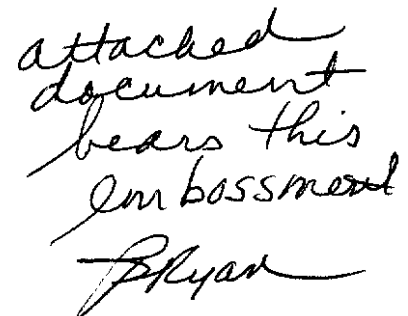 attached
document
bears this
embossment
Ryan